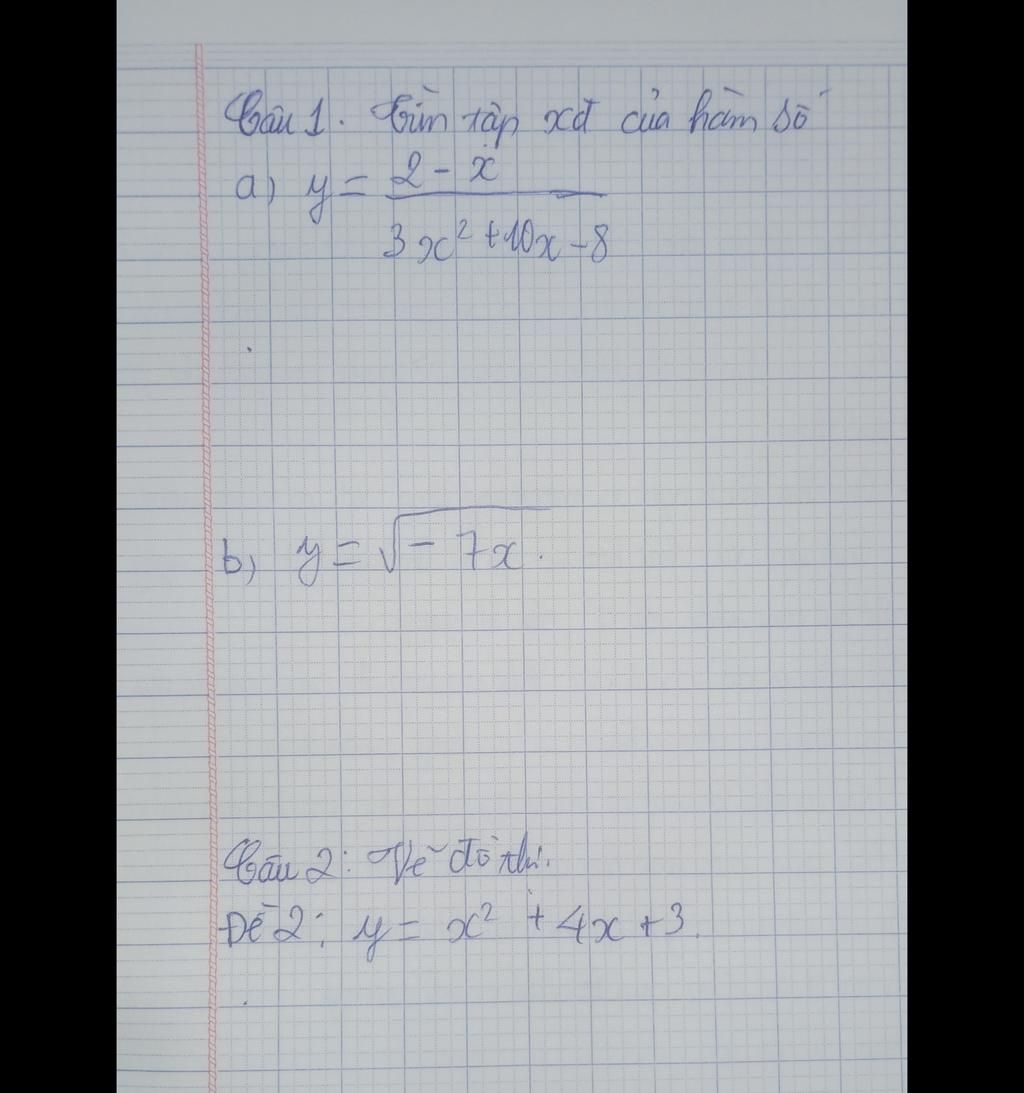 Câu 1. Tìm tập xđ của hàm số
a) y = \frac{2 - x}{3x² + 10x - 8}
b) y = √(-7x).
Câu 2: Vẽ đồ thị.
Đề 2: y = x² + 4x + 3.